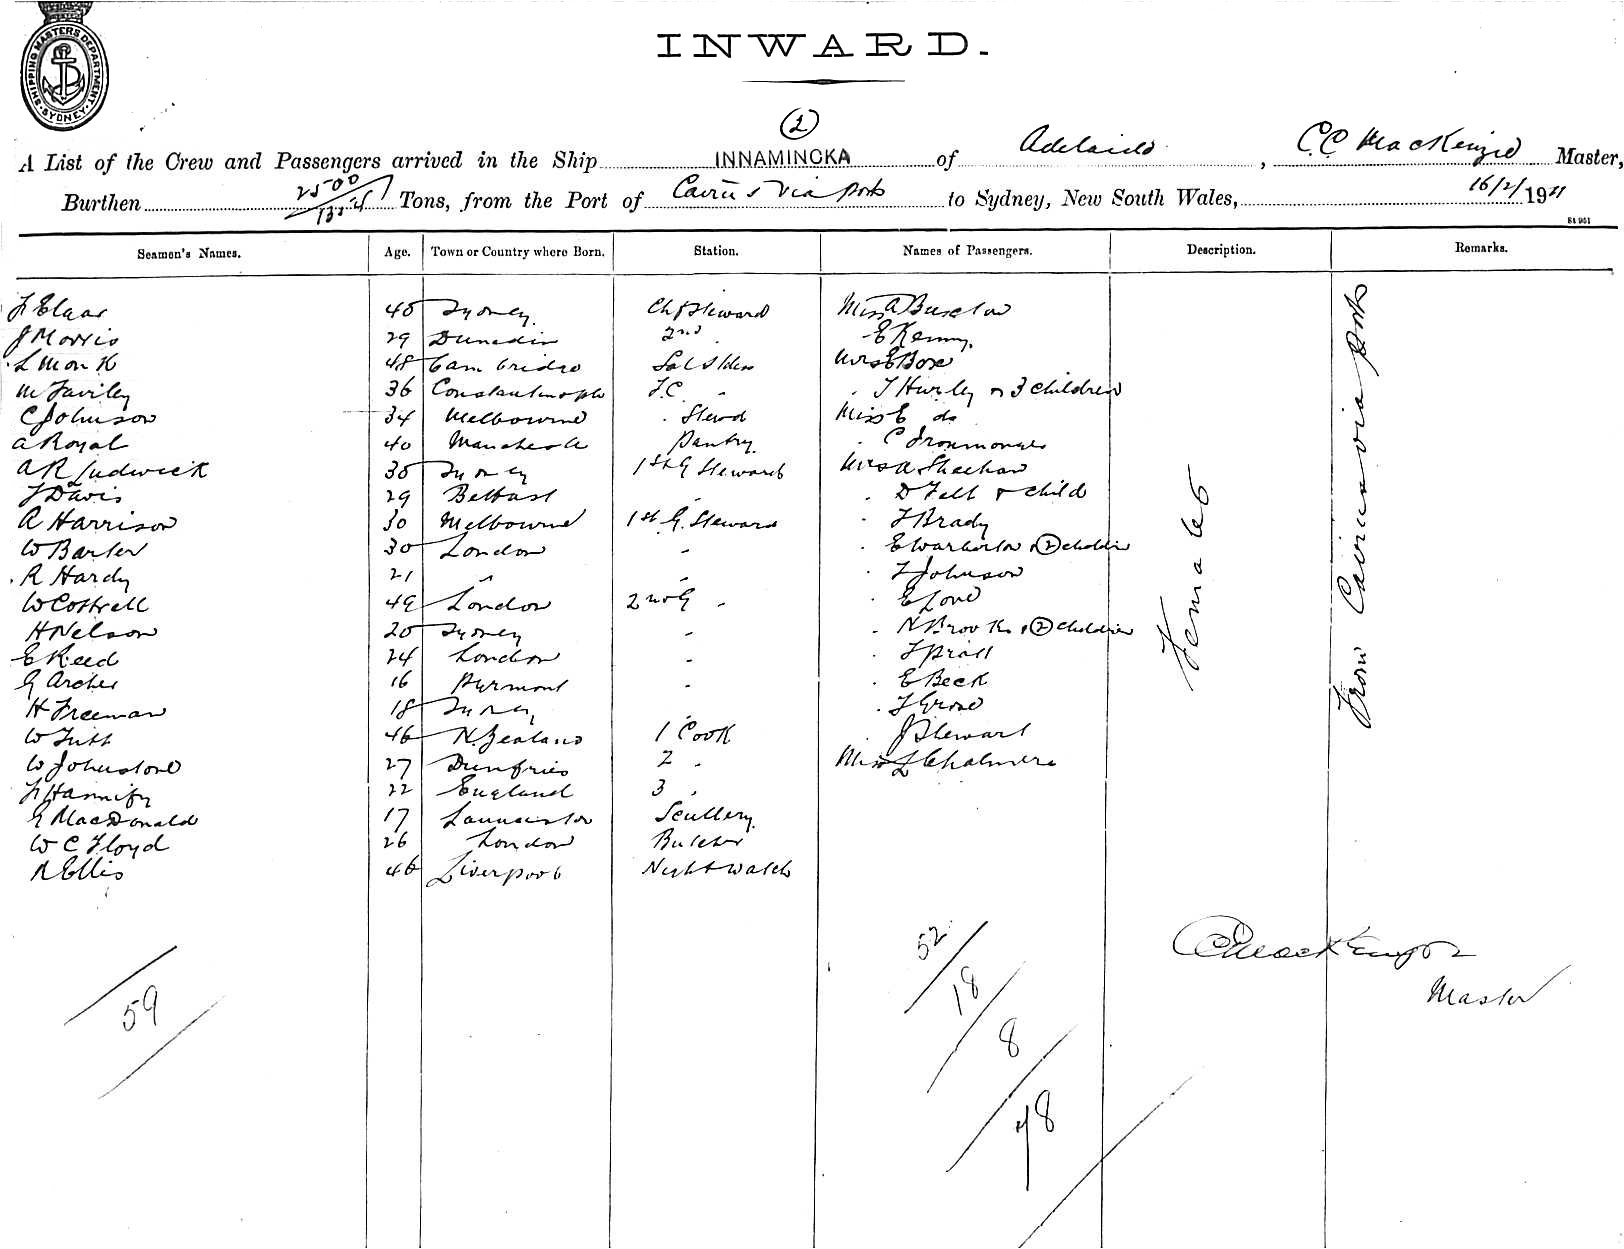 SHIPPING MASTERS DEPARTMENT. SYDNEY.
INWARD.
2
A List of the Crew and Passengers arrived in the Ship INNAMINCKA of Adelaide, C.C. MacKenzie Master,
Burthen 2500 Tons, from the Port of Cairns via ports to Sydney, New South Wales, 16/2/1921
Seamen's Names. Age. Town or Country where Born. Station. Names of Passengers. Description. Remarks.
40 Sydney. Chf Steward Miss A Buxton
J Morris 29 Dunedin 2nd " E Kenny.
L Monk 48 Cambridge Mrs E Box
36 Constantinople " J Hurley & 3 children
C Johnson 34 Melbourne " Stewd Miss E do
A Royal 40 Manchester Pantry. " C Ironmonger
A R Ludwick 38 Sydney 1st G Stewards Mrs A Sheehan
J Davis 29 Belfast " " D Felt & child
A Harrison 30 Melbourne 1st G. Steward " J Brady
W Barter 30 London " " E Warburton & 2 children
R Hardy 21 " " " J Johnson
W Cottrell 49 London 2nd G " " E Love
H Nelson 20 Sydney " " N Brook & 2 children
E Reed 24 London " " J Pratt
G Archer 16 Pyrmont " " E Beck
H Freeman 18 Sydney " J Grose
W Tutt 46 N. Zealand 1 Cook " J Stewart
W Johnstone 27 Dumfries 2 " Miss L Chalmers
22 England 3 "
G MacDonald 17 Launceston Scullery.
W C Floyd 26 London Butcher
R Ellis 46 Liverpool Nightwatch
Females
From Cairns via ports
59
52
18
8
78
CC MacKenzie
Master